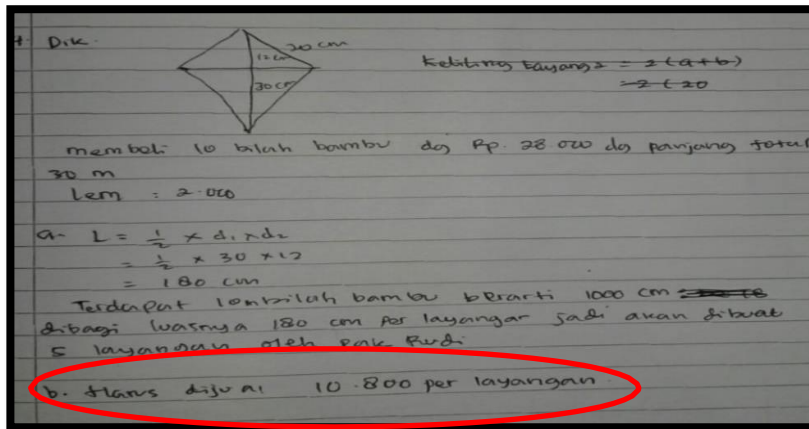 Dik.
20 cm
12 cm
30 cm
keliling layang2 = 2(a+b)
= 2 (20
membeli 10 bilah bambu dg Rp. 28.000 dg panjang total
30 m
Lem = 2.000
a. L = 1/2 x d1 x d2
= 1/2 x 30 x 12
= 180 cm
Terdapat 10 bilah bambu berarti 1000 cm
dibagi luasnya 180 cm per layangan jadi akan dibuat
5 layangan oleh pak Rudi
b. Harus dijual 10.800 per layangan